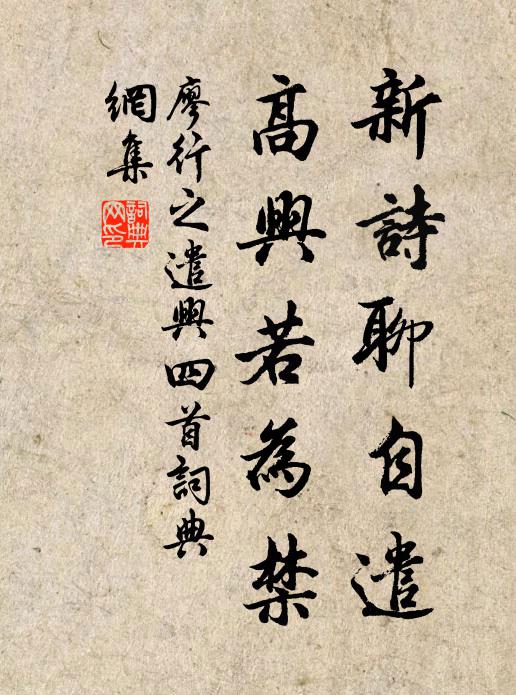 新詩聊自遣
高興若為禁
廖行之遣興四首詞典
網集
詞典
网印